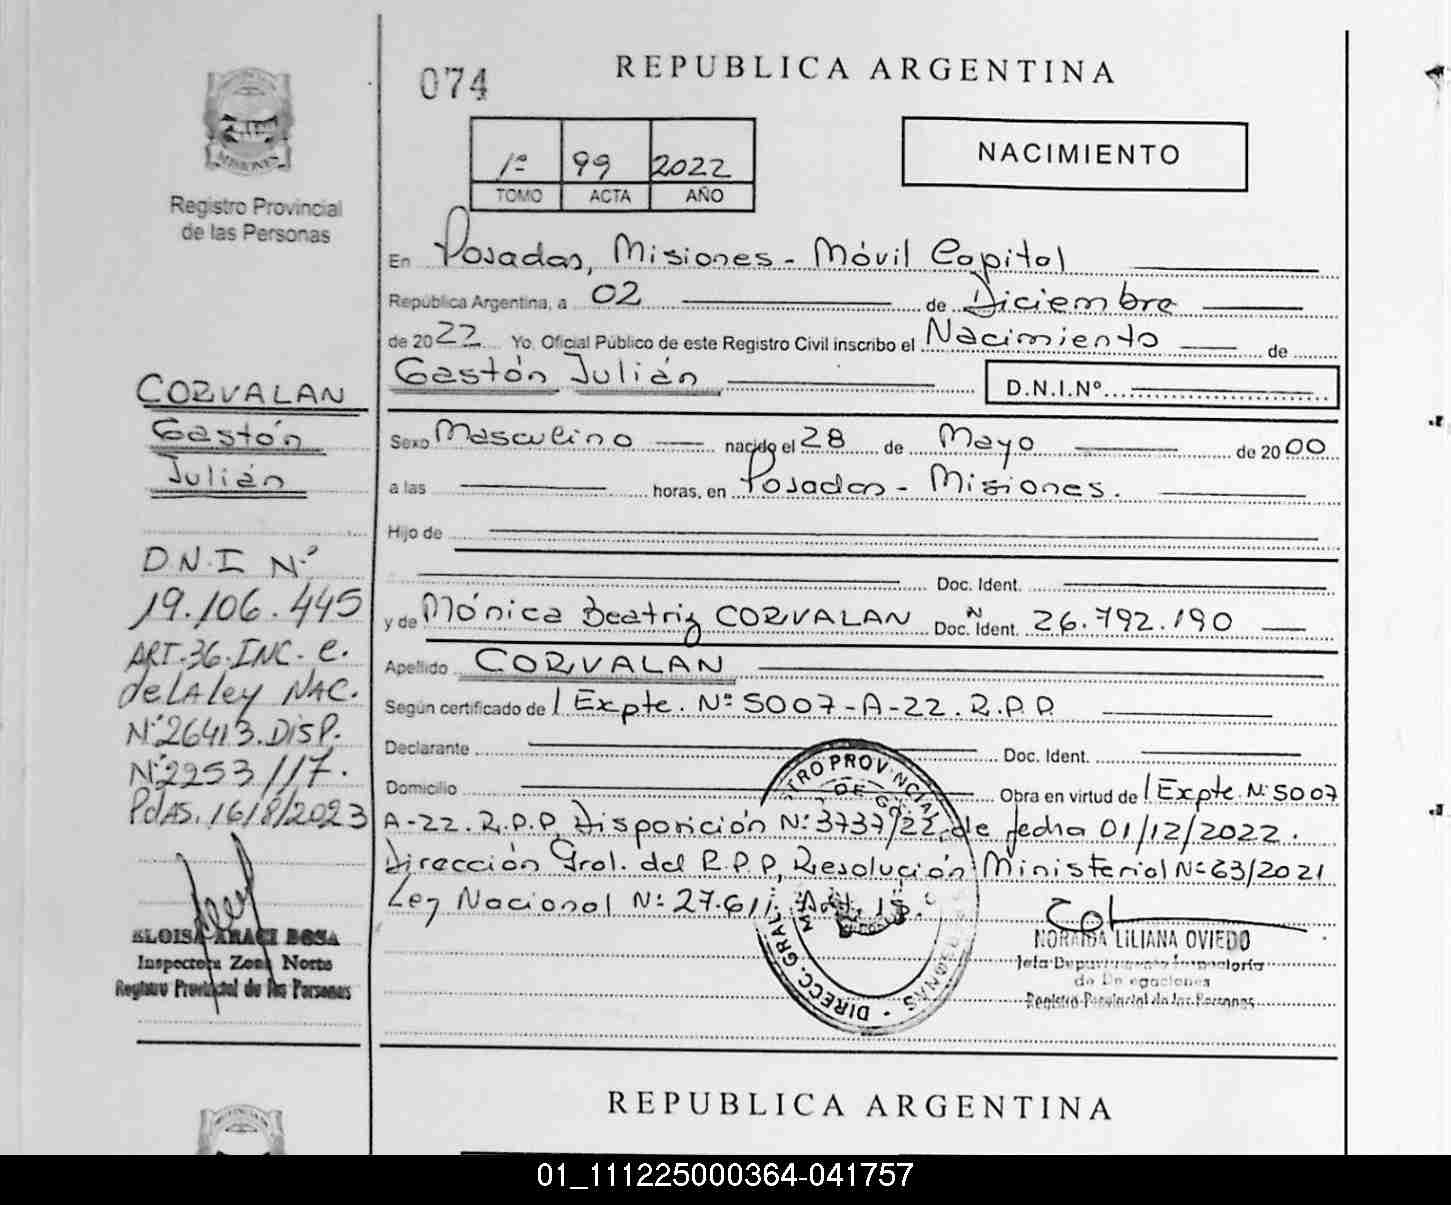 074
REPUBLICA ARGENTINA
1º 99 2022
TOMO ACTA AÑO
NACIMIENTO
MISIONES
Registro Provincial
de las Personas
En Posadas, Misiones - Móvil Capital
República Argentina, a 02 de Diciembre
de 2022 Yo, Oficial Público de este Registro Civil inscribo el Nacimiento de
Gastón Julián D.N.I.Nº
Sexo Masculino nacido el 28 de Mayo de 2000
a las horas, en Posadas - Misiones.
Hijo de
Doc. Ident.
y de Mónica Beatriz CORVALAN Doc. Ident. N 26.792.190
Apellido CORVALAN
Según certificado de / Expte. Nº 5007-A-22.R.P.P.
Declarante Doc. Ident.
Domicilio Obra en virtud de / Expte. Nº 5007
A-22.R.P.P, Disposición Nº 3737/22 de fecha 01/12/2022.
Dirección Gral. del R.P.P, Resolución Ministerial Nº 63/2021
Ley Nacional Nº 27.611. Art. 18.
NORAIDA LILIANA OVIEDO
Jefa Departamento Inspectoría
de Delegaciones
Registro Provincial de las Personas
CORVALAN
Gastón
Julián
D.N.I Nº
19.106.445
ART.36.INC. e.
de LA ley NAC.
Nº 26413.DISP.
Nº 2253/17.
PdAS. 16/8/2023
ELOISA ARACI BOSA
Inspectora Zona Norte
Registro Provincial de las Personas
REPUBLICA ARGENTINA
01_111225000364-041757